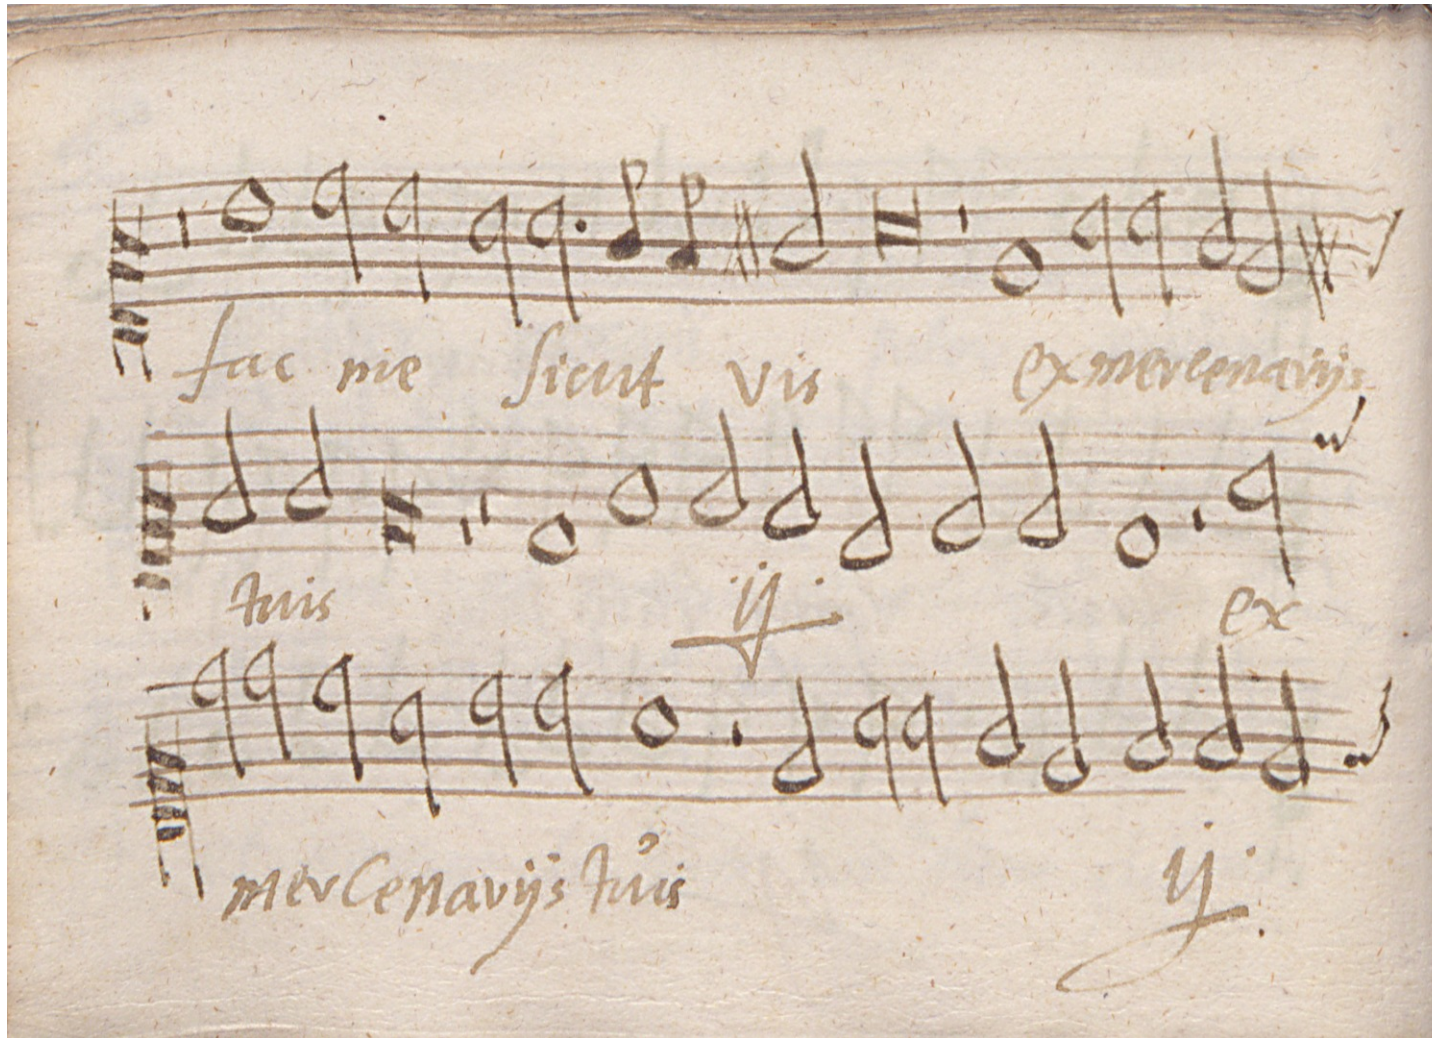 fac me sicut vis ex mercenarijs
tuis ij. ex
mercenarijs tuis ij.